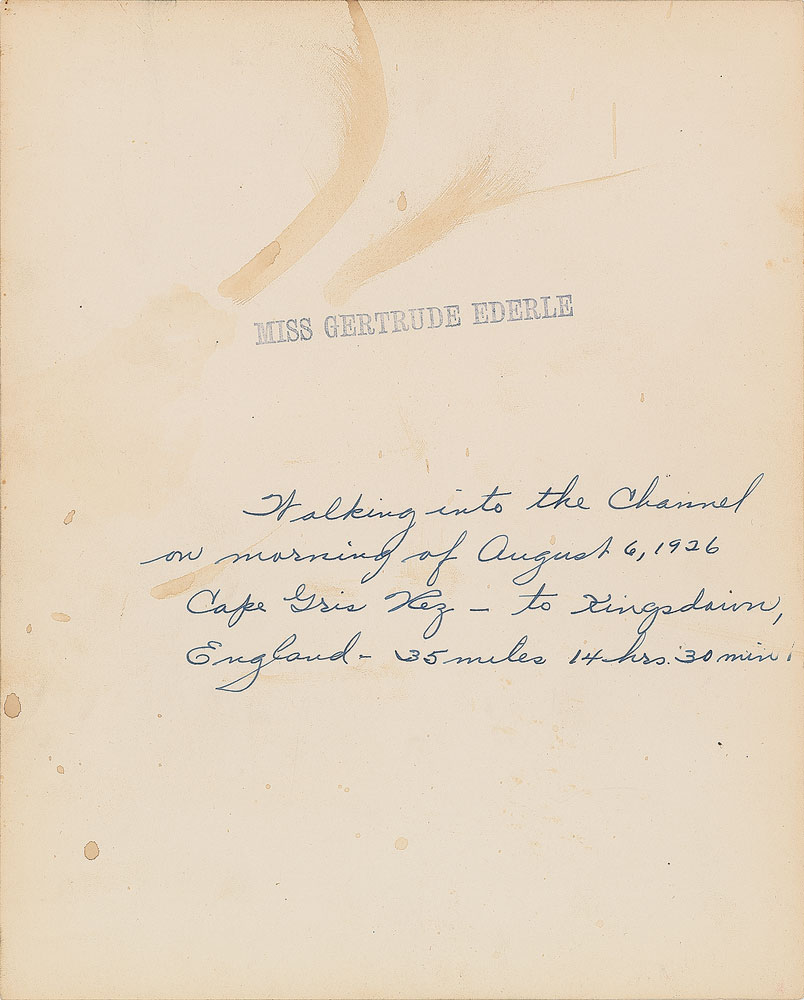 MISS GERTRUDE EDERLE
Walking into the Channel
on morning of August 6, 1926
Cape Gris Nez – to Kingsdown,
England – 35 miles 14 hrs. 30 min.